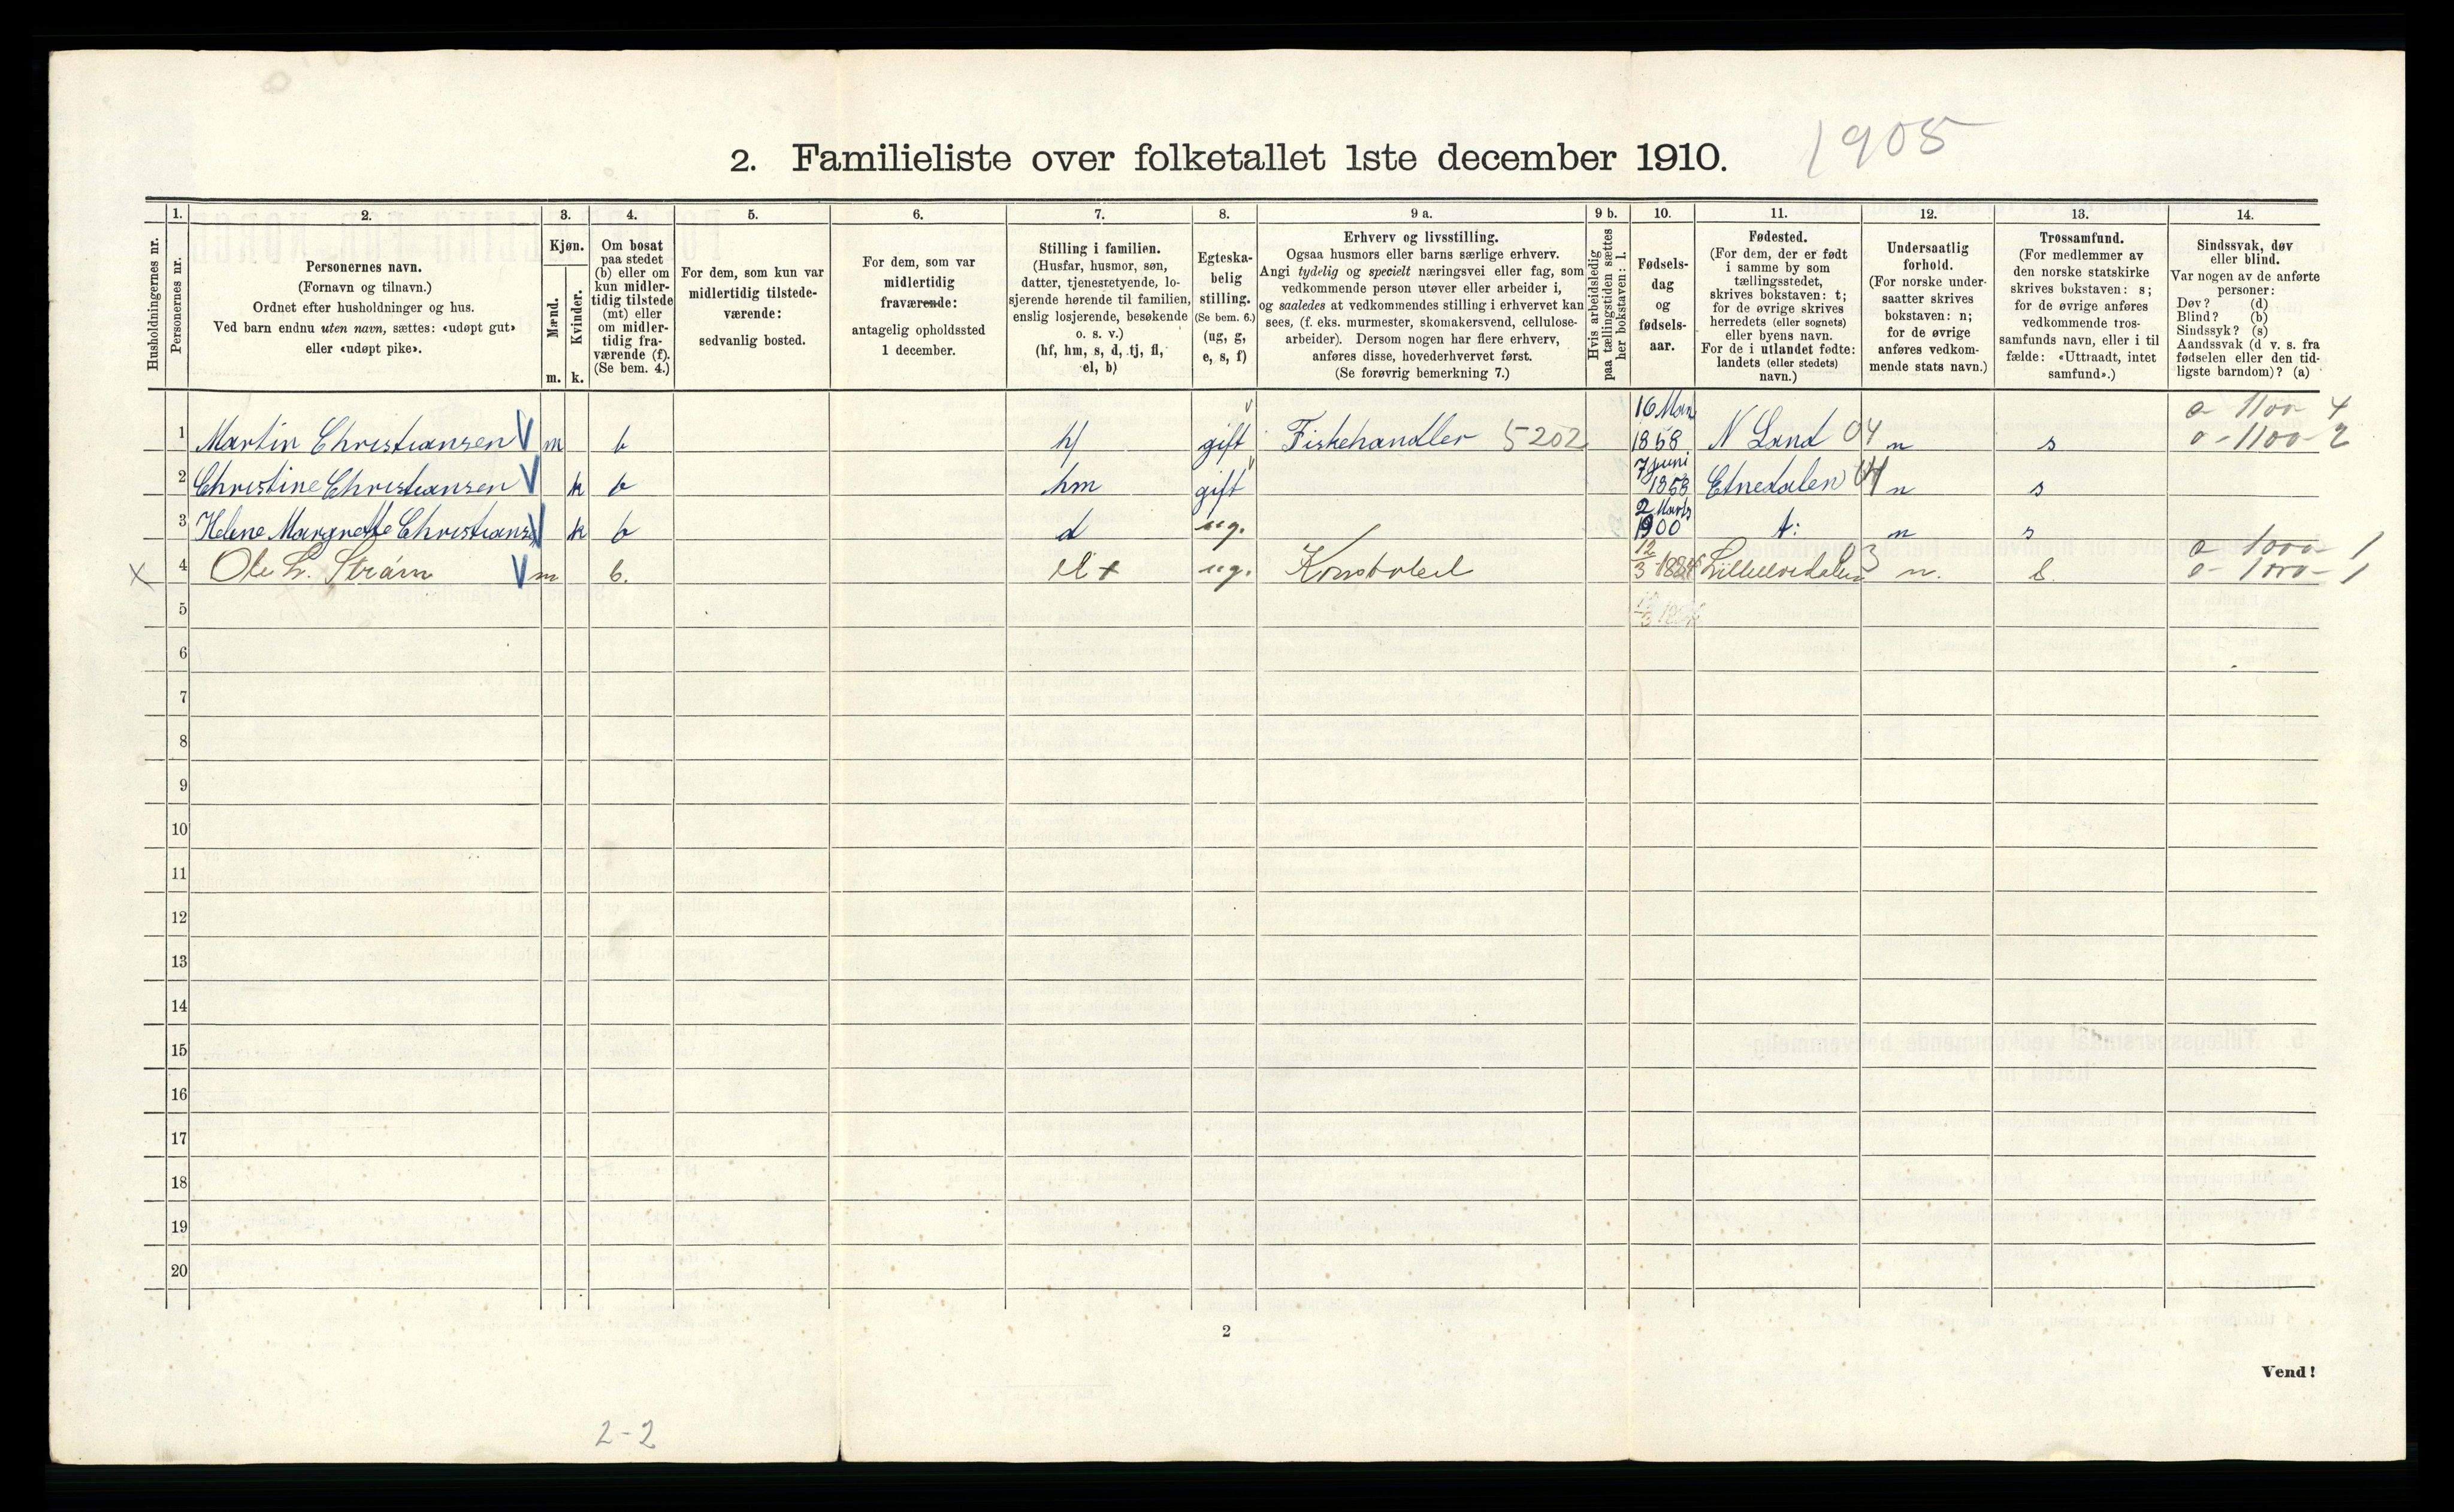 1905
2. Familieliste over folketallet 1ste december 1910.
Husholdningernes nr.
1. Personernes nr.
2. Personernes navn.
(Fornavn og tilnavn.)
Ordnet efter husholdninger og hus.
Ved barn endnu uten navn, sættes: «udøpt gut»
eller «udøpt pike».
3. Kjøn.
Mænd. m.
Kvinder. k.
4. Om bosat
paa stedet
(b) eller om
kun midler-
tidig tilstede
(mt) eller
om midler-
tidig fra-
værende (f).
(Se bem. 4.)
5. For dem, som kun var
midlertidig tilstede-
værende:
sedvanlig bosted.
6. For dem, som var
midlertidig
fraværende:
antagelig opholdssted
1 december.
7. Stilling i familien.
(Husfar, husmor, søn,
datter, tjenestetyende, lo-
sjerende hørende til familien,
enslig losjerende, besøkende
o. s. v.)
(hf, hm, s, d, tj, fl,
el, b)
8. Egteska-
belig
stilling.
(Se bem. 6.)
(ug, g,
e, s, f)
9 a. Erhverv og livsstilling.
Ogsaa husmors eller barns særlige erhverv.
Angi tydelig og specielt næringsvei eller fag, som
vedkommende person utøver eller arbeider i,
og saaledes at vedkommendes stilling i erhvervet kan
sees, (f. eks. murmester, skomakersvend, cellulose-
arbeider). Dersom nogen har flere erhverv,
anføres disse, hovederhvervet først.
(Se forøvrig bemerkning 7.)
9 b. Hvis arbeidsledig
paa tællingstiden sættes
her bokstaven: l.
10. Fødsels-
dag
og
fødsels-
aar.
11. Fødested.
(For dem, der er født
i samme by som
tællingsstedet,
skrives bokstaven: t;
for de øvrige skrives
herredets (eller sognets)
eller byens navn.
For de i utlandet fødte:
landets (eller stedets)
navn.)
12. Undersaatlig
forhold.
(For norske under-
saatter skrives
bokstaven: n;
for de øvrige
anføres vedkom-
mende stats navn.)
13. Trossamfund.
(For medlemmer av
den norske statskirke
skrives bokstaven: s;
for de øvrige anføres
vedkommende tros-
samfunds navn, eller i til
fælde: «Uttraadt, intet
samfund».)
14. Sindssvak, døv
eller blind.
Var nogen av de anførte
personer:
Døv? (d)
Blind? (b)
Sindssyk? (s)
Aandssvak (d v. s. fra
fødselen eller den tid-
ligste barndom)? (a)
1 Martin Christiansen V m b hf gift Fiskehandler 5202 16 Mars 1858 N Land 04 n s 0-1100-4 0-1100-2
2 Christine Christiansen V k b hm gift 7 Juni 1853 Etnedalen 04 n s
3 Helene Margrethe Christians V k b d ug. 2 Marts 1900 t: n s
X 4 Ole L. Strøm V m b. el + ug. Konstabel 12/3 1884 03 n. s. 0-1000-1 0-1000-1
5
6
7
8
9
10
11
12
13
14
15
16
17
18
19
20
2
Vend!
2-2